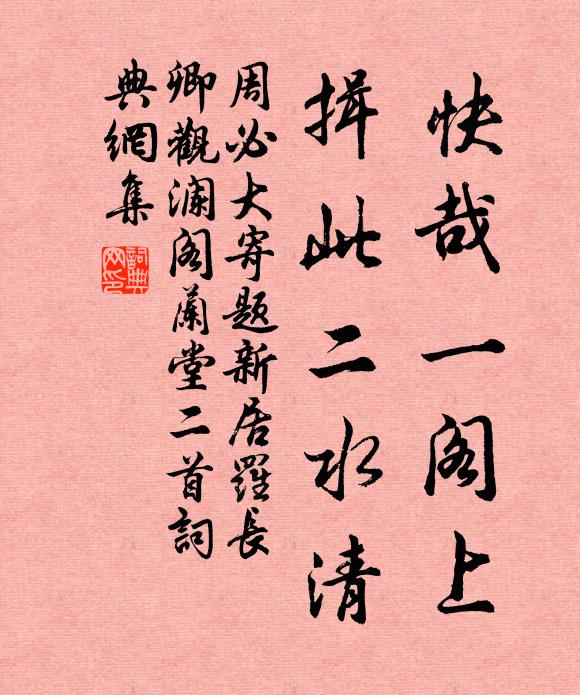 快哉一阁上
揖此二水清
周必大寄题新居羅長
卿觀澜阁蘭堂二首詞
典網集
詞典
网印